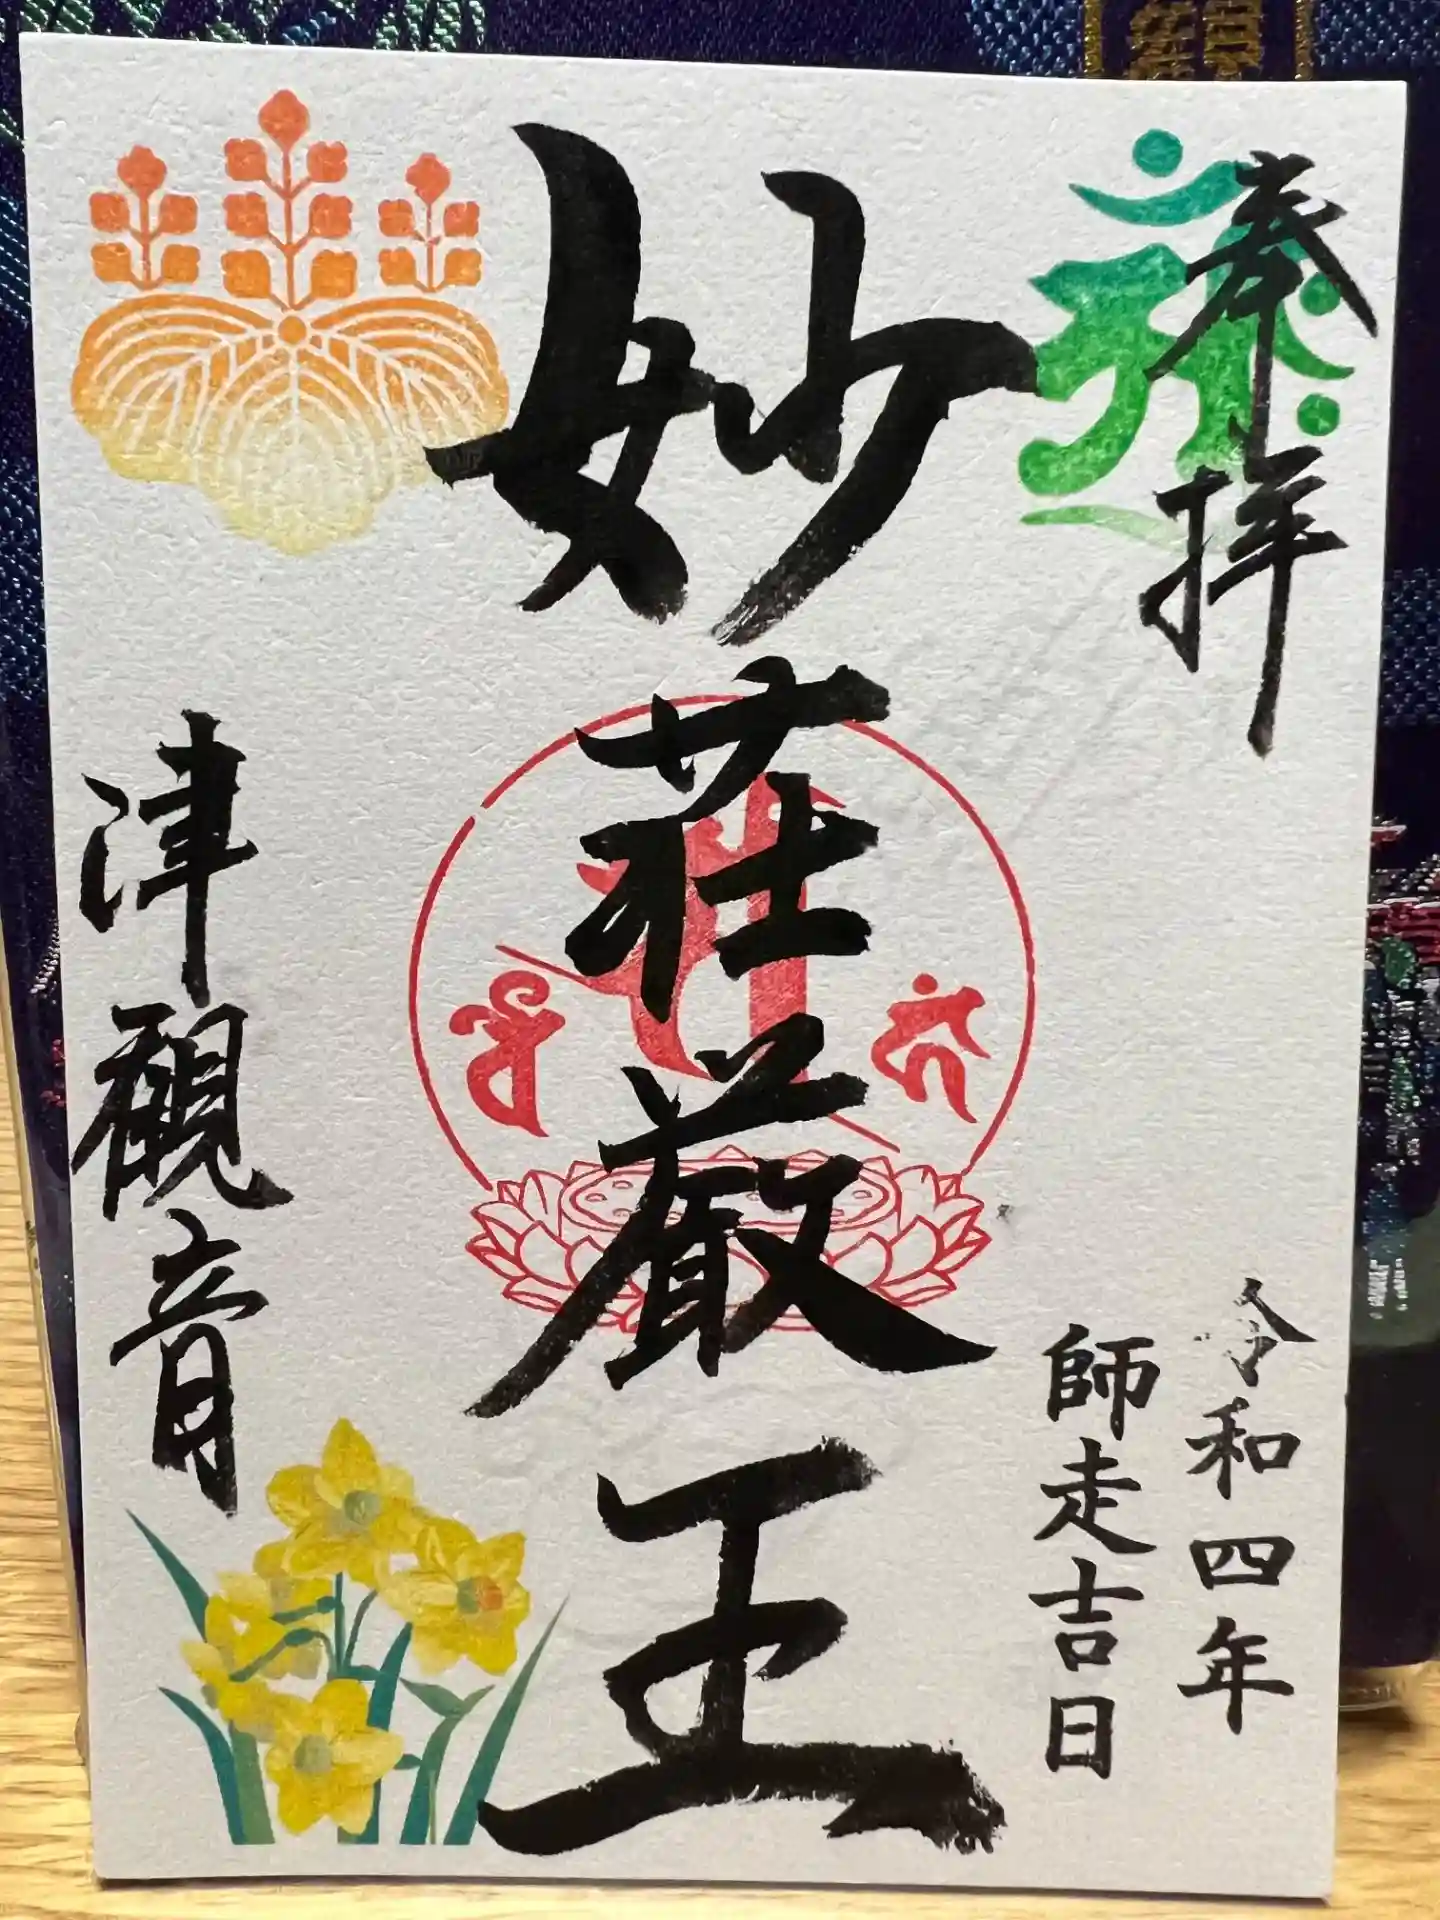 奉拝
令和四年
師走吉日
妙荘厳王
津観音